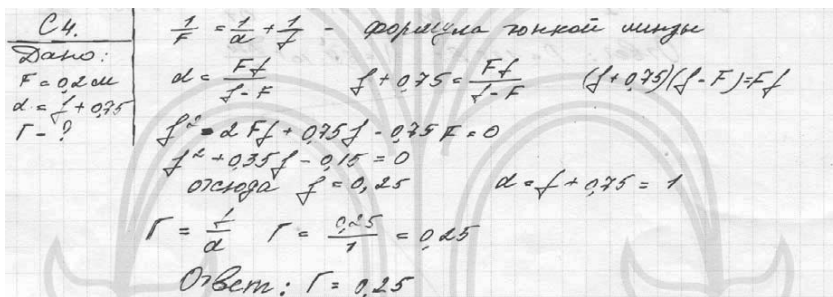 С4.
Дано:
F = 0,2 м
d = f + 0,75
Г - ?
1/F = 1/d + 1/f - формула тонкой линзы
d = Ff/(f-F) f + 0,75 = Ff/(f-F) (f + 0,75)(f - F) = Ff
f² - 2Ff + 0,75f - 0,75F = 0
f² + 0,35f - 0,15 = 0
отсюда f = 0,25 d = f + 0,75 = 1
Г = f/d Г = 0,25/1 = 0,25
Ответ: Г = 0,25